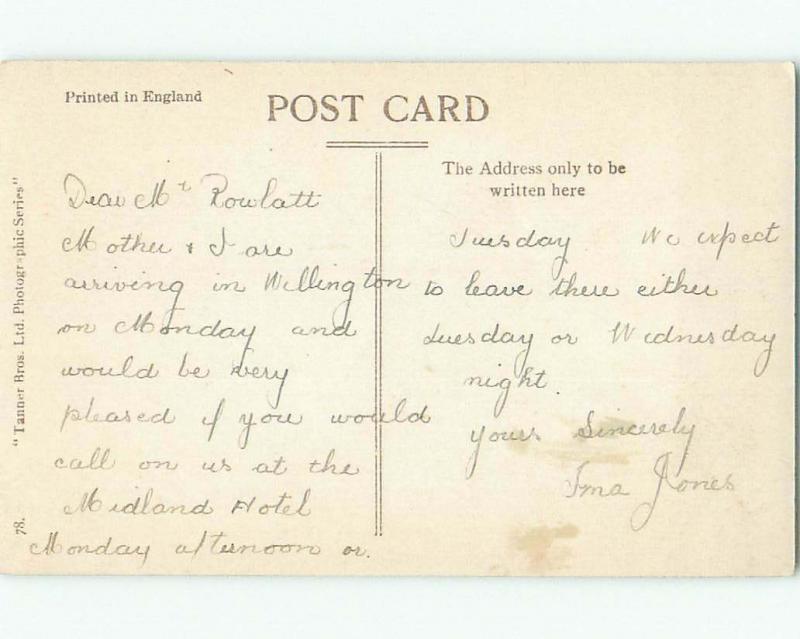 Printed in England
POST CARD
The Address only to be
written here
"Tanner Bros. Ltd. Photographic Series"
78.
Dear Mr Rowlatt
Mother & I are
arriving in Wellington
on Monday and
would be very
pleased if you would
call on us at the
Midland Hotel
Monday afternoon or.
Tuesday We expect
to leave there either
Tuesday or Wednesday
night.
yours Sincerely
Ima Jones